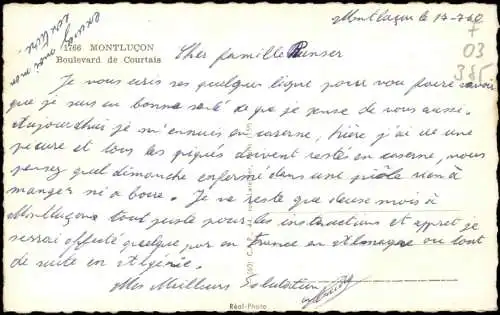 Montluçon le 17-7-60
excusez moi mon
écriture
1766 MONTLUÇON
Boulevard de Courtais
Cher famille Runser
03
385
Je vous écris ses quelques ligne pour vou faire savoir
que je suis en bonne santé de que je pense de vous aussi.
Aujourdhui je m'ennuis en caserne, hière j'ai ue une
picure et tous les piqués doivent resté en caserne, vous
pensez quel dimanche enfermé dans une piôle rien à
manger ni a boire. Je ne reste que deux mois à
Montluçon tout juste pour les instructions et apret je
serrai affecté quelque par en France en Allemagne ou tout
de suite en Algérie.
Mes Meilleurs Salutation
Réal-Photo